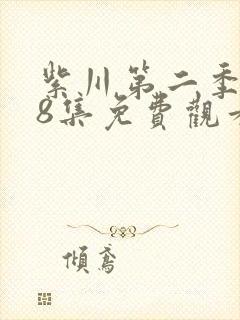 紫川第二季
8集免費觀
傾鳶